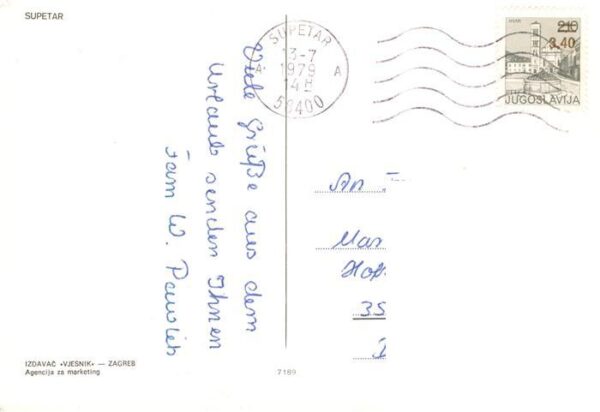 SUPETAR
SUPETAR
13-7
1979
14H
A A
58400
HVAR
2.10
3.40
JUGOSLAVIJA
Viele Grüße aus dem
Urlaub senden Ihnen
Fam W.
An
Mar
Hof
35
IZDAVAČ »VJESNIK« — ZAGREB
Agencija za marketing
7189